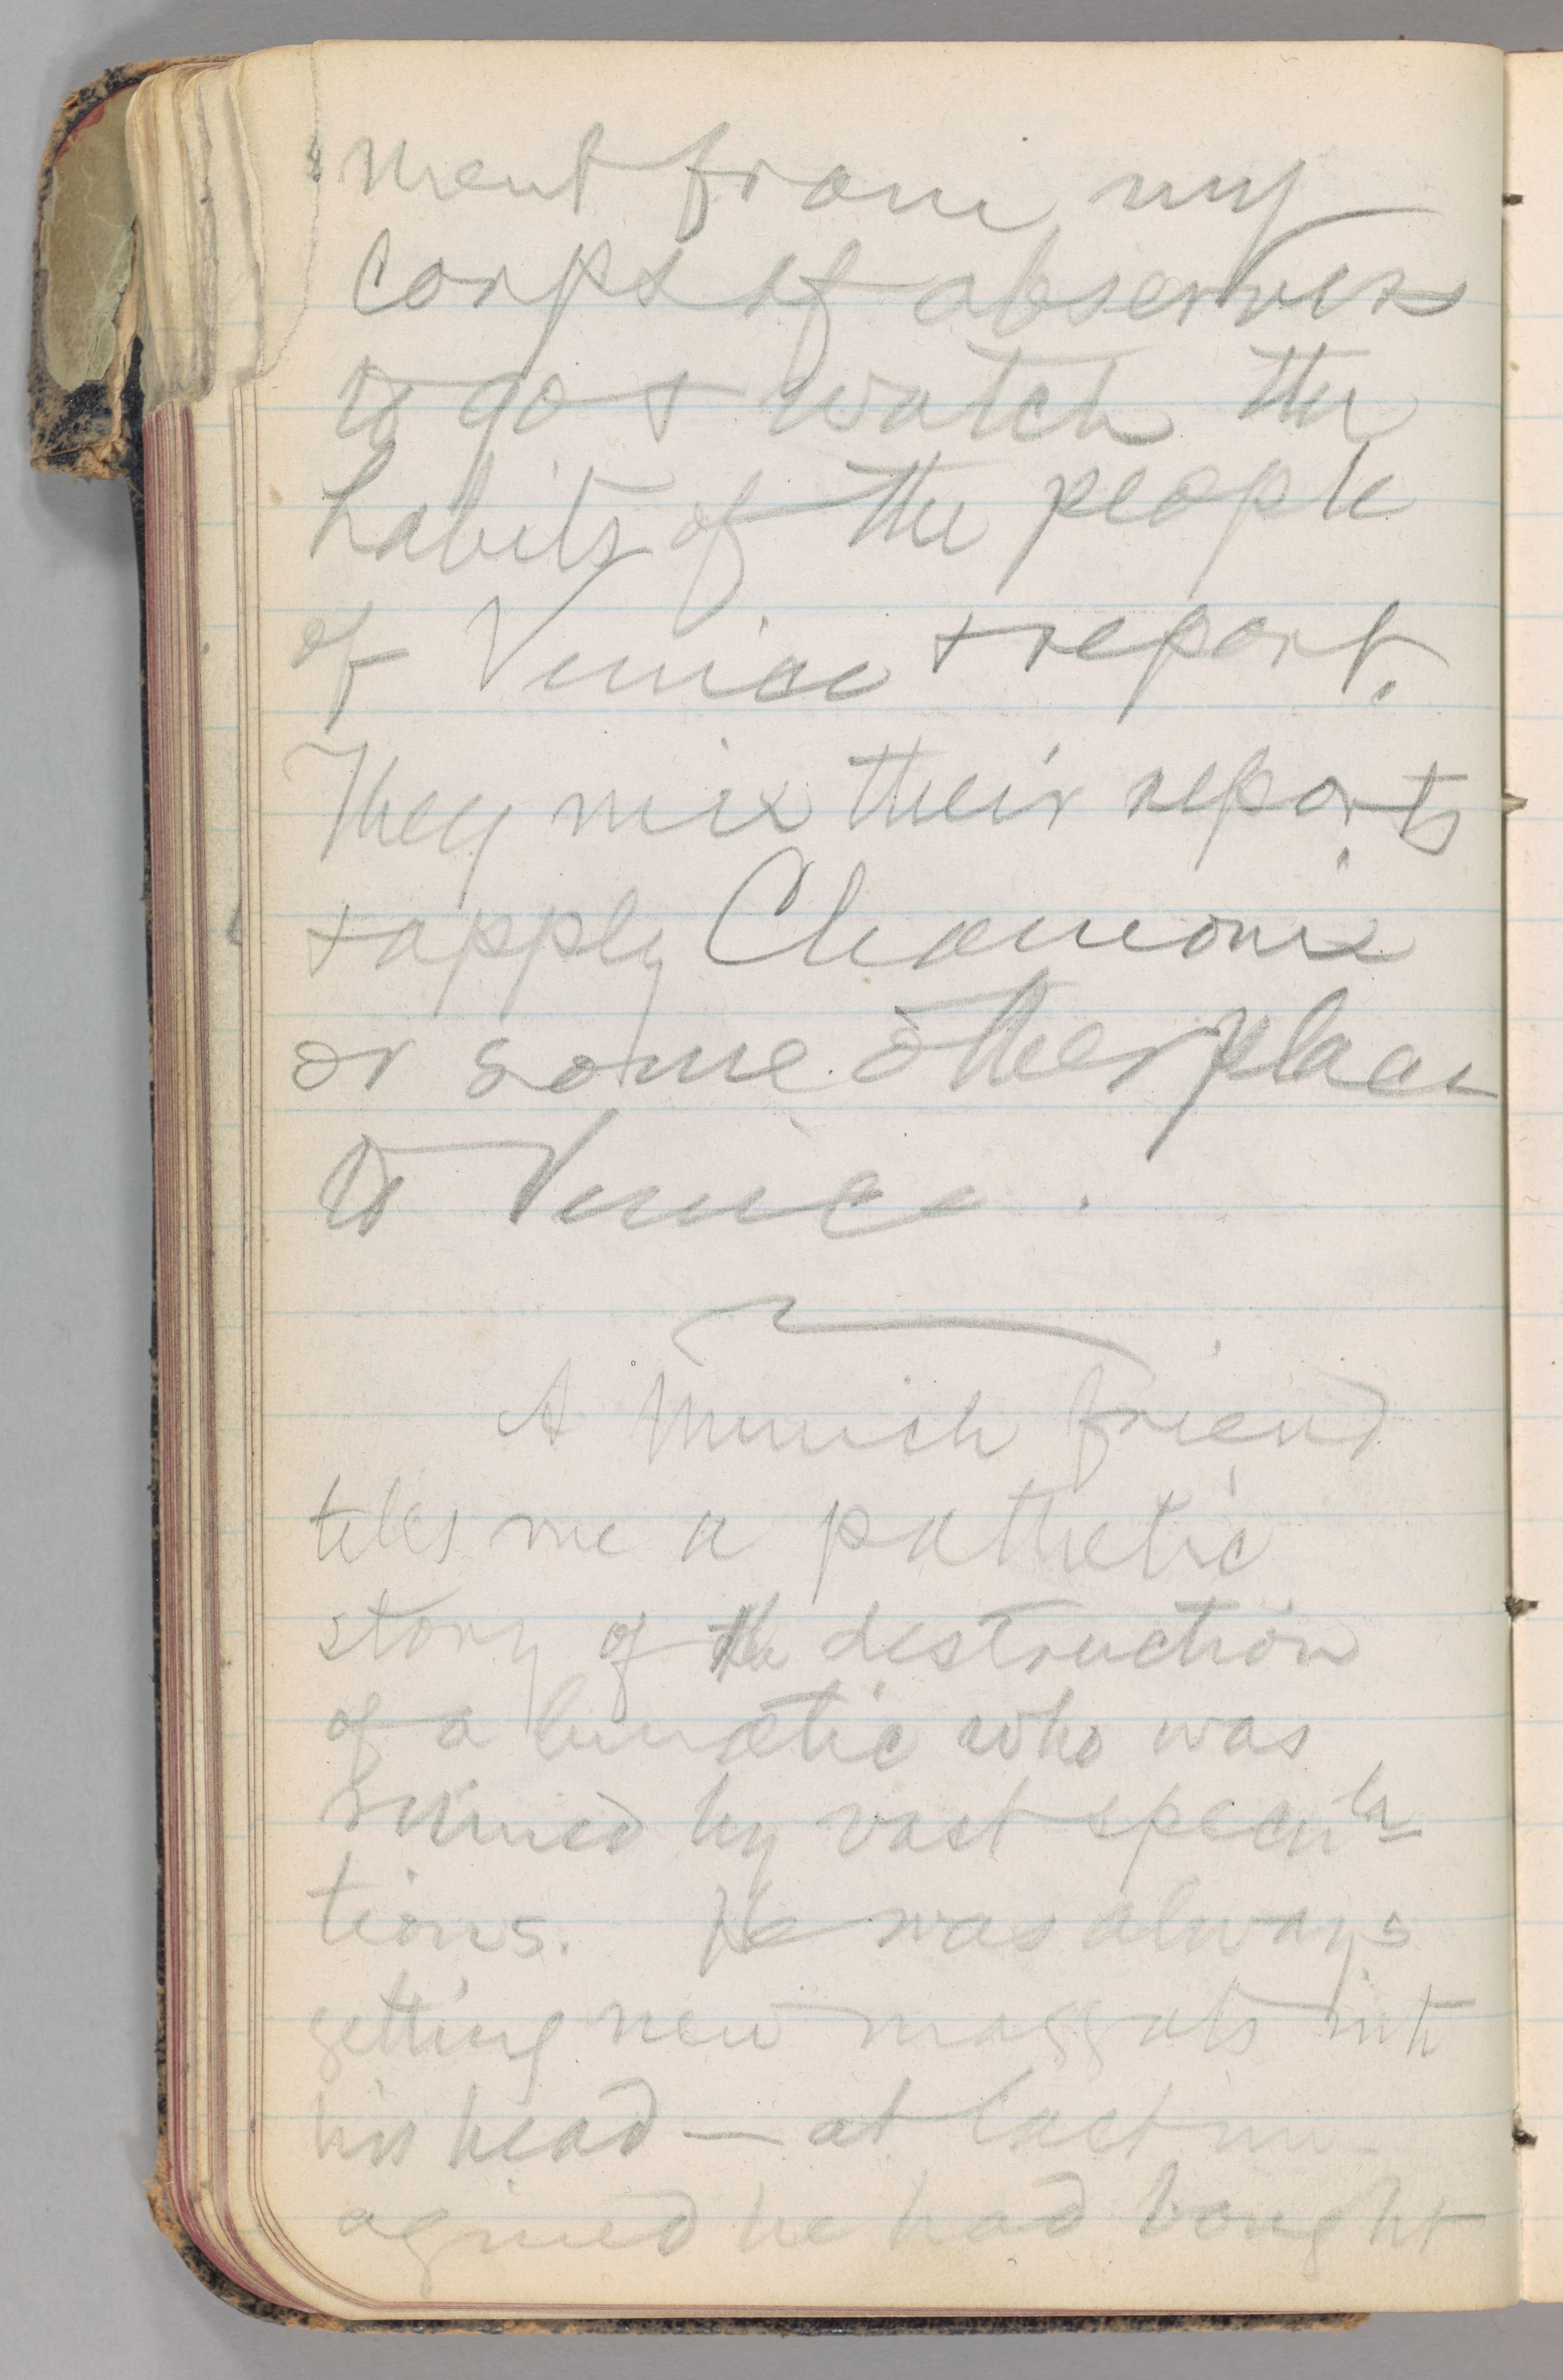 ment from my
corps of observers
to go & watch the
habits of the people
of Venice & report.
They mix their reports
& apply Chamonix
or some other place
to Venice.
A Munich friend
tells me a pathetic
story of the destruction
of a lunatic who was
ruined by vast specula-
tions. He was always
getting new maggots into
his head — at last im-
agined he had bought